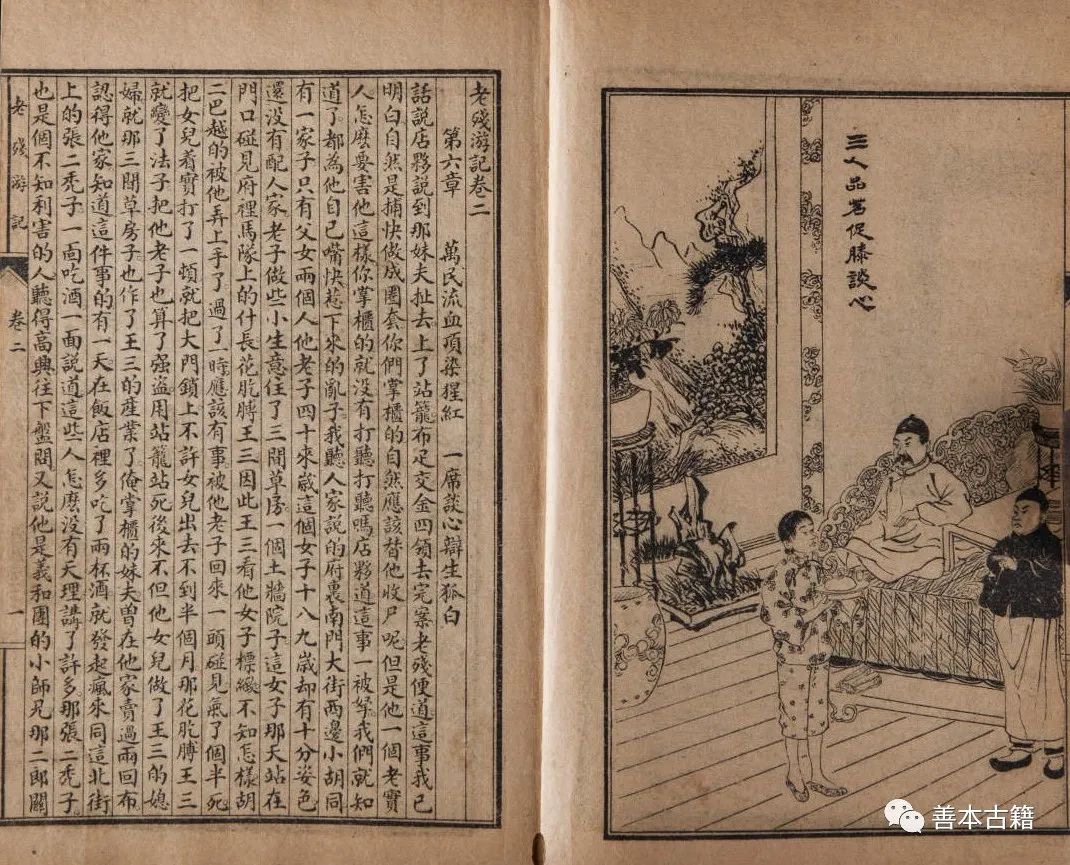 三人品茗促膝談心
老殘游記卷二
第六章 萬民流血頂染猩紅 一席談心辯生狐白
話說店夥說到那妹夫扯去上了站籠布疋交金四領去完案老殘便道這事我已
明白自然是捕快做成圈套你們掌櫃的自然應該替他收尸呢但是他一個老實
人怎麽要害他這樣你掌櫃的就沒有打聽打聽嗎店夥道這事一被拏我們就知
道了都為他自己嘴快惹下來的亂子我聽人家說的府裏南門大街西邊小胡同
有一家子只有父女兩個人他老子四十來歲這個女子十八九歲却有十分姿色
還沒有配人家老子做些小生意住了三間草房一個土牆院子這女子那天站在
門口碰見府裡馬隊上的什長花肐膊王三因此王三看他女子標緻不知怎樣胡
二巴越的被他弄上手了過了一時應該有事被他老子回來一頭碰見氣了個半死
把女兒着實打了一頓就把大門鎖上不許女兒出去不到半個月那花肐膊王三
就變了法子把他老子也算了强盜用站籠站死後來不但他女兒做了王三的媳
婦就那三間草房子也作了王三的產業了俺掌櫃的妹夫曾在他家賣過兩回布
認得他家知道這件事的有一天在飯店裡多吃了兩杯酒就發起瘋來同這北街
上的張二禿子一面吃酒一面說道這些人怎麽沒有天理講了許多那張二禿子
也是個不知利害的人聽得高興往下盤問又說他是義和團的小師兄那二郎關
老殘游記
卷二
一
善本古籍